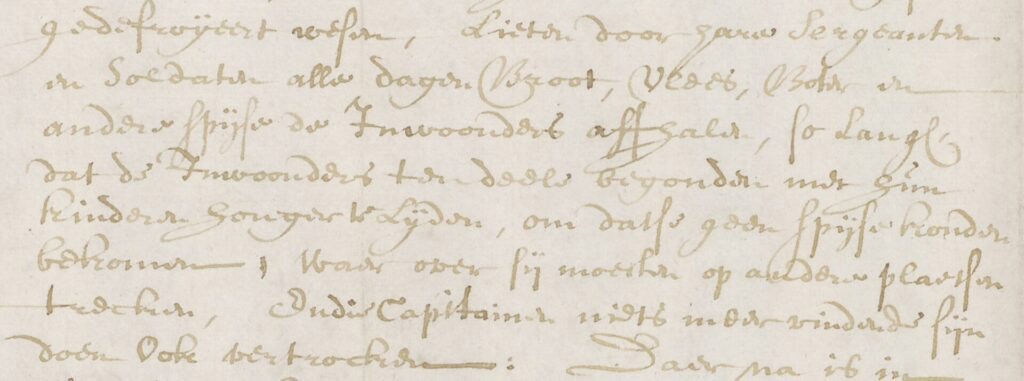 gedefroyeert wesen, Lieten door hare Sergeanten
en Soldaten alle dagen Broot, Vlees, Boter en
andere spijse de Inwoonders affhalen, so Lang
dat de Inwoonders ten deele begonden met hun
kinderen honger te Lyden, om datse geen spijse konden
bekomen, waer over sij moesten op andere plaetsen
trecken, Ende Capittainen niets meer vindende sijn
doen Ook vertrocken : Daer na is in